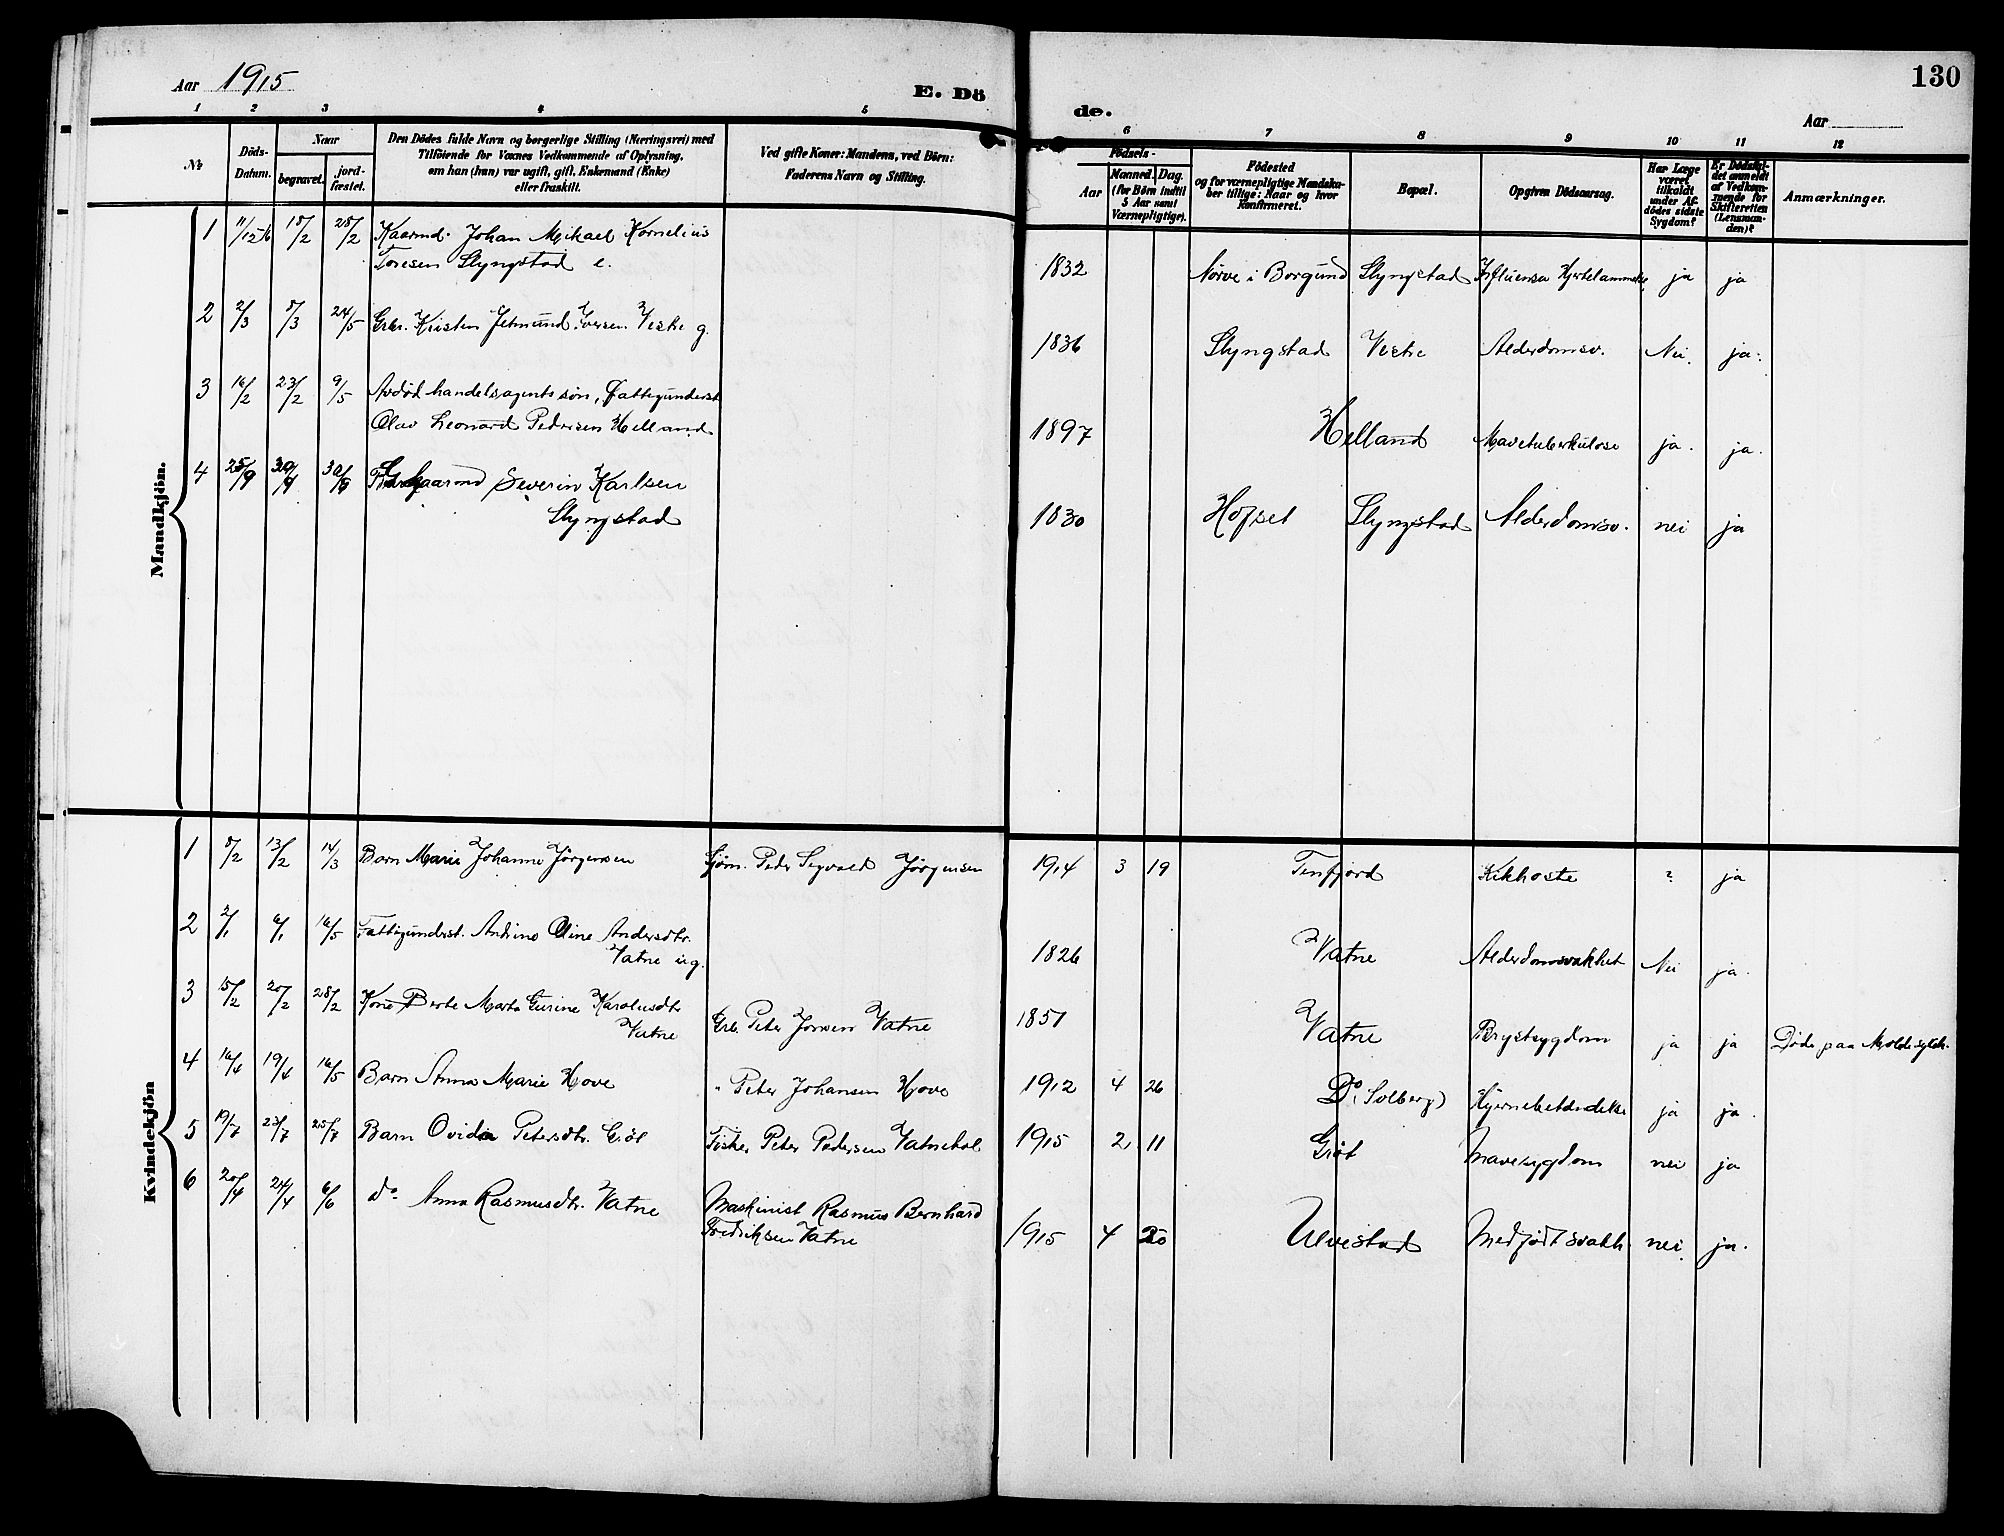 Aar 1915
E. Dö
de.
Aar
130
1 2 3 4 5
6 7 8 9 10 11 12
No
Döds-
Datum.
Naar
begravet.
jord-
fæstet.
Den Dödes fulde Navn og borgerlige Stilling (Næringsvei) med
Tilföiende for Voxnes Vedkommende af Oplysning,
om han (hun) var ugift, gift, Enkemand (Enke)
eller fraskilt.
Ved gifte Koner: Mandens, ved Börn:
Faderens Navn og Stilling.
Födsels-
Aar
Maaned. Dag.
(for Börn indtil
5 Aar samt
Værnepligtige).
Födested
og for værnepligtige Mandska-
ber tillige: Naar og hvor
konfirmeret.
Bopæl.
Opgiven Dödsaarsag.
Har Læge
været
tilkaldt
under Af-
dödes sidste
Sygdom?
Er Dödsfal-
det anmeldt
af Vedkom-
mende for
Skifteretten
(Lensman-
den)?
Anmærkninger.
Mandkjön.
1 18/2 28/2 Kaarmd. Johan Mikael Kornelius
Toresen Slyngstad e.
1832 Nørve i Borgund Slyngstad Influensa ja ja
2 2/3 8/3 24/5 Grbr. Kristen Jetmund Iversen Vestre g.
1836 Slyngstad Vestre Alderdomsv. Nei. ja.
3 16/2 23/2 9/5 Avdød handelsagents søn, Fattigunderst.
Olav Leonard Pedersen Helland
1897 Helland Mavetuberkulose ja. ja.
4 25/9 30/9 Kaarmd Severin Karlsen
Slyngstad
1830 Hofset Slyngstad Alderdomsv. nei ja
Kvindekjön
1 8/2 13/2 14/3 Barn Marie Johanne Jørgensen Sjøm. Peder Sigvald Jørgensen
1914 3 19 Tenfjord Kikhoste ? ja
2 2/1 6/1 16/5 Fattigunderst. Andrine Oline Andersdtr.
Vatne ug.
1826 Vatne Alderdomsvakhet Nei ja.
3 15/2 20/2 28/2 Kone Berte Marta Gurine Karolusdtr
Vatne Grb. Peter Jonsen Vatne
1851 Vatne Brystsygdom ja ja Døde paa Molde sykeh.
4 16/4 19/4 16/5 Barn Anna Marie Hove " Peter Johansen Hove
1912 4 26 Do (Solberg) Hjernebetændelse ja ja.
5 19/7 23/7 25/7 Barn Ovida Petersdtr. Gjøt Fisker Peter Pedersen Vatnehol
1915 2 11 Gjøt Mavesygdom nei ja
6 20/4 24/4 6/6 do Anna Rasmusdtr. Vatne Maskinist Rasmus Bernhard
Fredriksen Vatne
1915 4 20 Ulvestad Medfødt svakh. nei. ja.